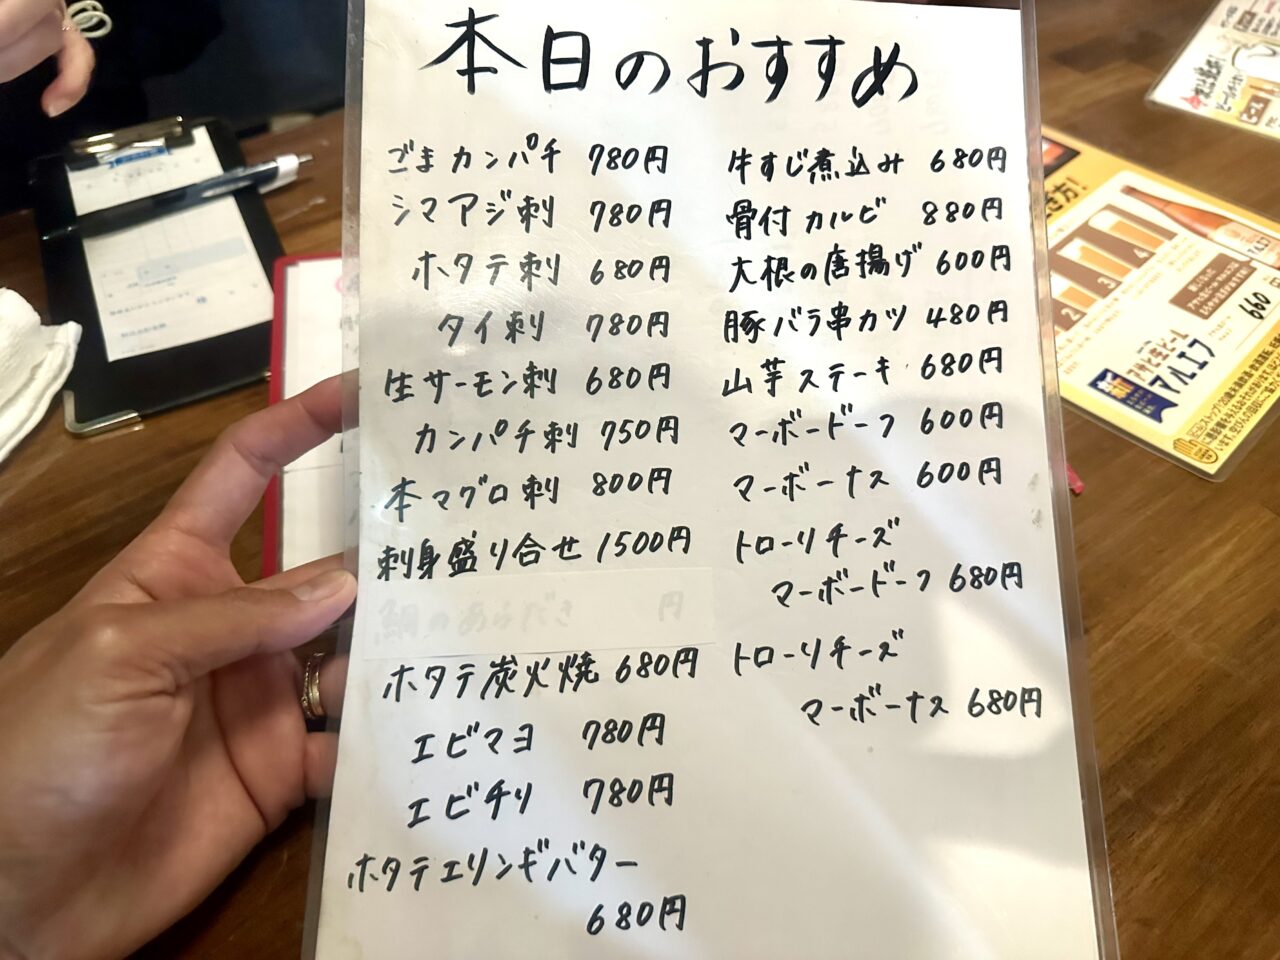 本日のおすすめ
ごまカンパチ 780円
シマアジ刺 780円
ホタテ刺 680円
タイ刺 780円
生サーモン刺 680円
カンパチ刺 750円
本マグロ刺 800円
刺身盛り合せ 1500円
鯛のあらだき 円
ホタテ炭火焼 680円
エビマヨ 780円
エビチリ 780円
ホタテエリンギバター
680円
牛すじ煮込み 680円
骨付カルビ 880円
大根の唐揚げ 600円
豚バラ串カツ 480円
山芋ステーキ 680円
マーボードーフ 600円
マーボーナス 600円
トローリチーズ
マーボードーフ 680円
トローリチーズ
マーボーナス 680円
き方!
1
2
3
4
マルエフ
660